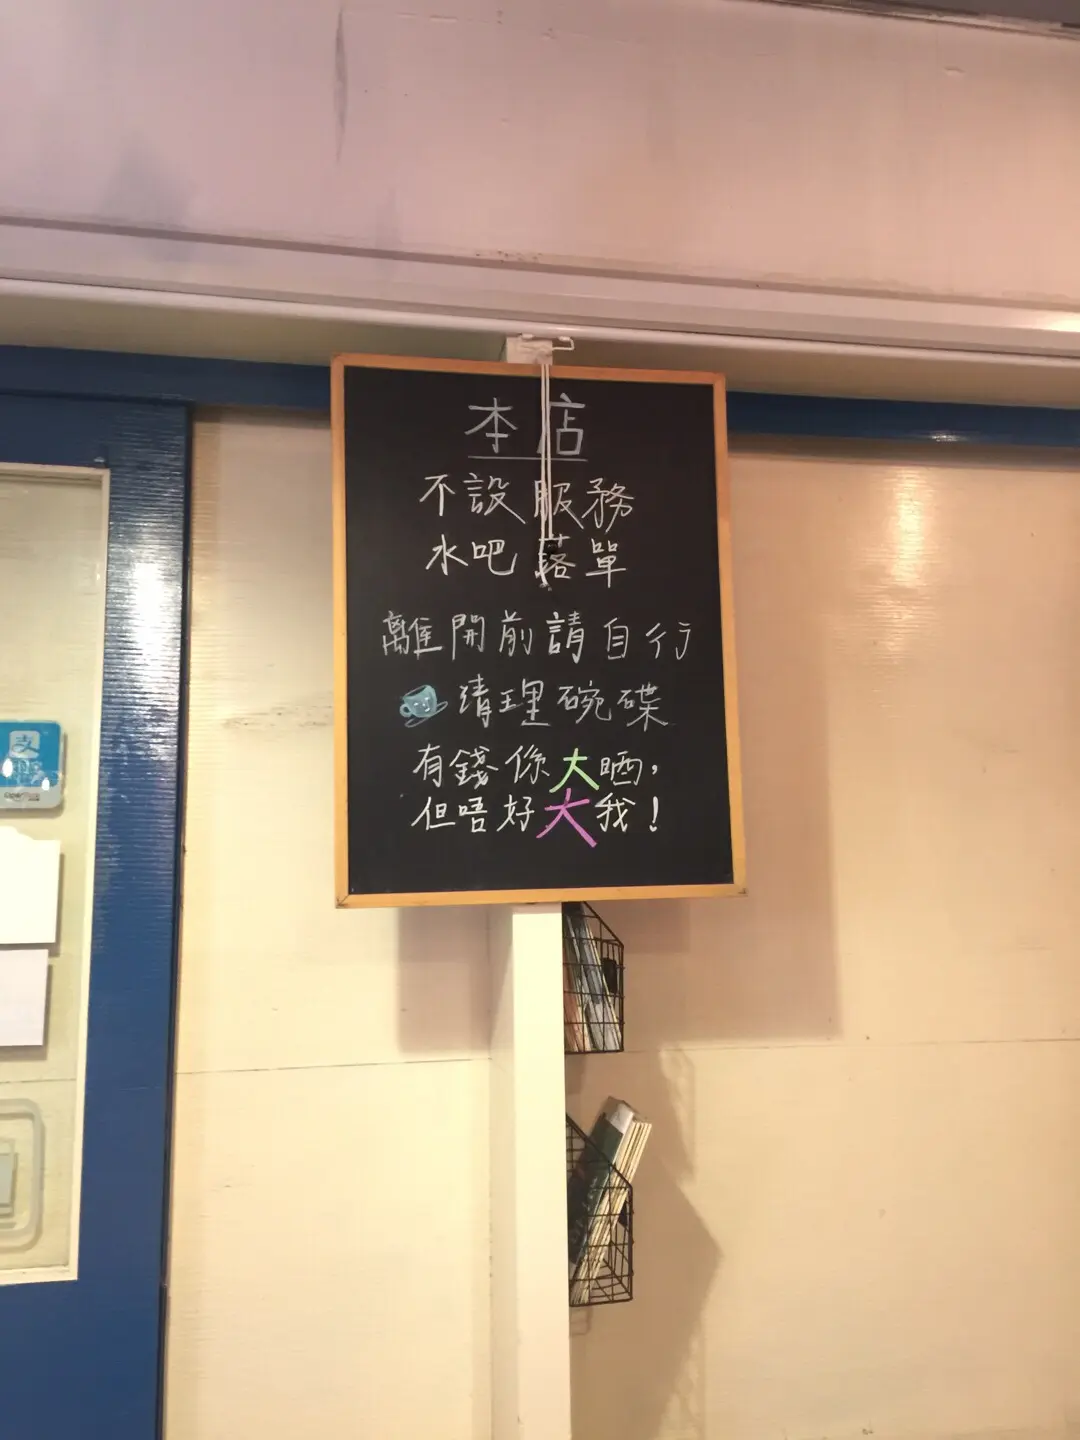 本店
不設服務
水吧落單
離開前請自行
清理碗碟
有錢你大晒，
但唔好大我！
支